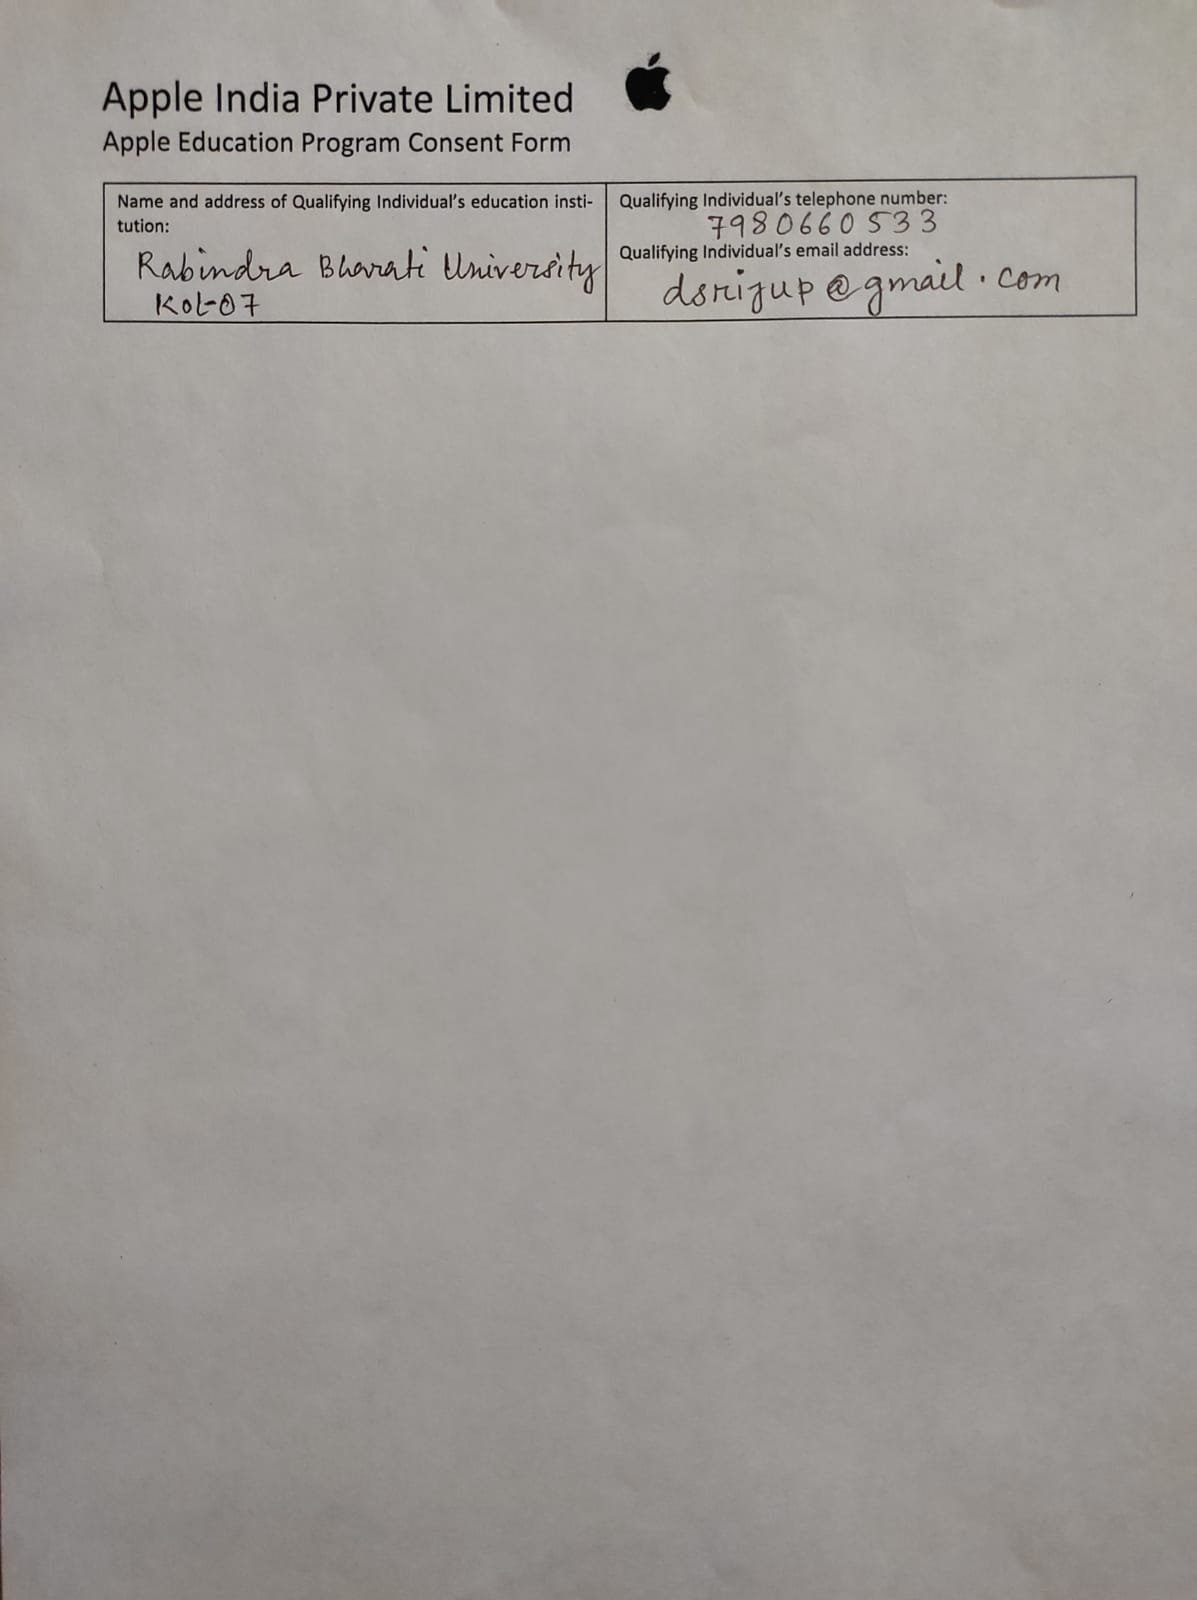 Apple India Private Limited
Apple Education Program Consent Form
Name and address of Qualifying Individual's education insti-
tution:
Rabindra Bharati University
Kol-07
Qualifying Individual's telephone number:
7980660533
Qualifying Individual's email address:
dsrijup@gmail.com